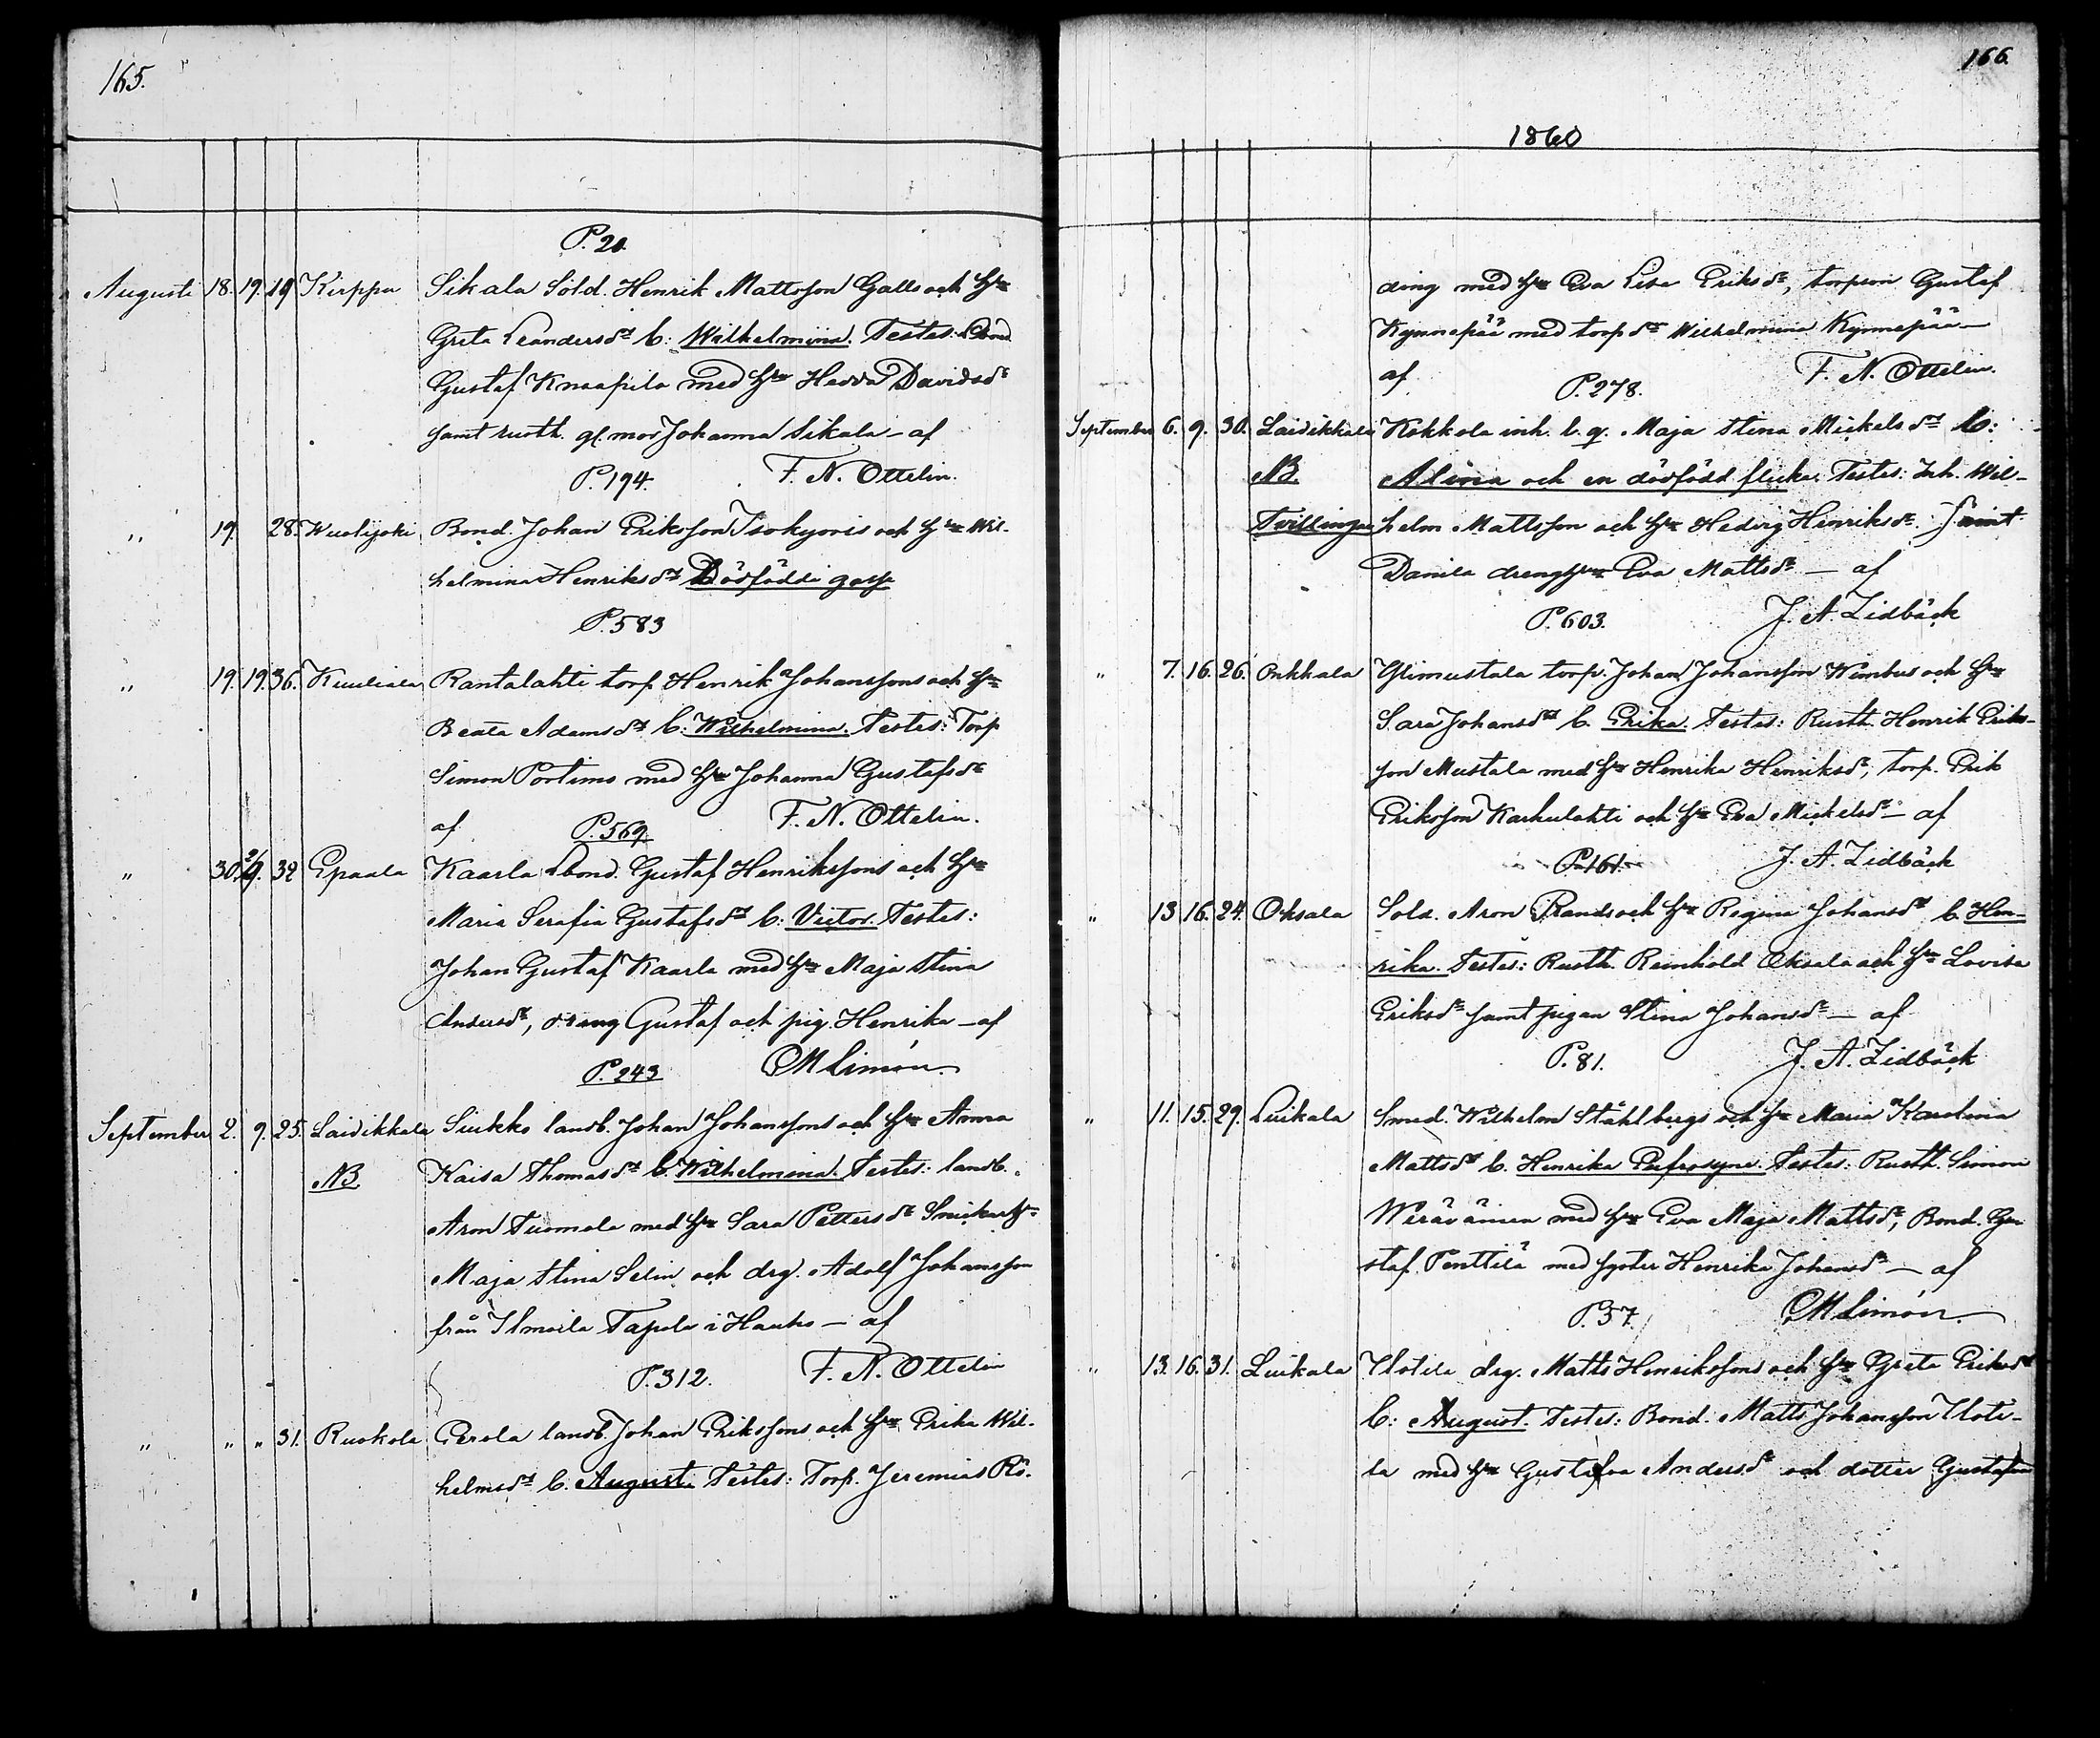 165.
P. 20.
Augusti 18. 19. 19 Kirppu Sikala Sold. Henrik Mattsson Galls och hu
Greta Leandersdr b: Wilhelmina. Testes: Lbond
Gustaf Knaapila med hu Hedda Davidsdr
samt rusth. gl. mor Johanna Sikala – af
P. 194. F. N. Ottelin.
„ 19. 28. Wuolijoki Bond. Johan Eriksson Isokyovis och hu Wil-
helmina Henriksdr Dödfödde gosse
P. 583
„ 19. 19. 36. Kuuliala Rantalahti torp Henrik Johanssons och hu
Beata Adamsdr b: Wilhelmina. Testes: Torp
Simon Portimo med hu Johanna Gustafsdr
af P. 569 F. N. Ottelin.
„ 30. 2/9. 32 Epaala Kaarla Lbond. Gustaf Henrikssons och hu
Maria Serafia Gustafsdr b: Victor. Testes:
Johan Gustaf Kaarla med hu Maja Stina
Andersdr, dräng Gustaf och pig. Henrika – af
P. 243 CM Limón.
September 2. 9. 25. Laidikkala Siukko landb. Johan Johanssons och hu Anna
NB. Kaisa Thomasdr b. Wilhelmina. Testes: landb.
Aron Tuomola med hu Sara Pettersdr Snickarhu
Maja Stina Selin och drg. Adolf Johansson
från Ilmoila Tapola i Hauho – af
P. 312. F. N. Ottelin
„ „ „ 31. Ruokola Perola landb. Johan Erikssons och hu Erika Wil-
helmsdr b. August. Testes: Torp. Jeremias Rö-
166.
1860
ding med hu Eva Lisa Eriksdr, torpson Gustaf
Kynnepää med torpdr Wilhelmina Kynnepää –
af P. 278. F. N. Ottelin.
September 6. 9. 30. Laidikkala Kokkola inh. l. q. Maja Stina Mickelsdr b:
NB. Alina och en dödfödd flicka. Testes: Inh. Wil-
Tvillingar helm Mattsson och hu Hedvig Henriksdr samt
Danila dränghu Eva Mattsdr – af
P. 603. J. A. Lidbäck
„ 7. 16. 26. Onkkala Ylimustala torp. Johan Johansson Wimbus och hu
Sara Johansdr b. Erika. Testes: Rusth. Henrik Eriks-
son Mustala med hu Henrika Henriksdr, torp. Erik
Eriksson Karhulahti och hu Eva Mickelsdr – af
P. 161. J. A. Lidbäck
„ 13. 16. 24. Oksala Sold. Aron Rands och hu Regina Johansdr b. Hen-
rika. Testes: Rusth. Reinhold Oksala och hu Lovisa
Eriksdr samt pigan Stina Johansdr – af
P. 81. J. A. Lidbäck
„ 11. 15. 29. Luikala Smed. Wilhelm Ståhlbergs och hu Maria Karolina
Mattsdr b. Henrika Eufrosyne. Testes: Rusth. Simon
Wäräväinen med hu Eva Maja Mattsdr, Bond. Gu-
staf Penttilä med syster Henrika Johansdr – af
P. 57. CM Limón.
„ 13. 16. 31. Luikala Ylotila drg. Matts Henrikssons och hu Greta Eriksdr
b: August. Testes: Bond. Matts Johansson Yloti-
la med hu Gustafva Andersdr och dotter Gustafva